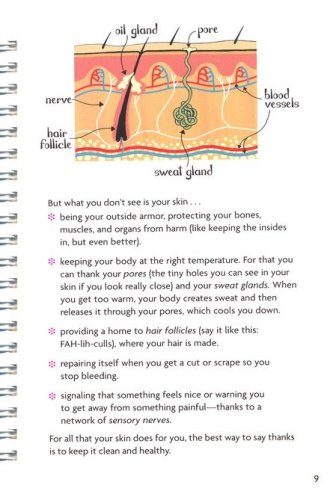 oil gland
pore
nerve
blood
vessels
hair
follicle
sweat gland
But what you don't see is your skin . . .
being your outside armor, protecting your bones,
muscles, and organs from harm (like keeping the insides
in, but even better).
keeping your body at the right temperature. For that you
can thank your pores (the tiny holes you can see in your
skin if you look really close) and your sweat glands. When
you get too warm, your body creates sweat and then
releases it through your pores, which cools you down.
providing a home to hair follicles (say it like this:
FAH-lih-culls), where your hair is made.
repairing itself when you get a cut or scrape so you
stop bleeding.
signaling that something feels nice or warning you
to get away from something painful—thanks to a
network of sensory nerves.
For all that your skin does for you, the best way to say thanks
is to keep it clean and healthy.
9